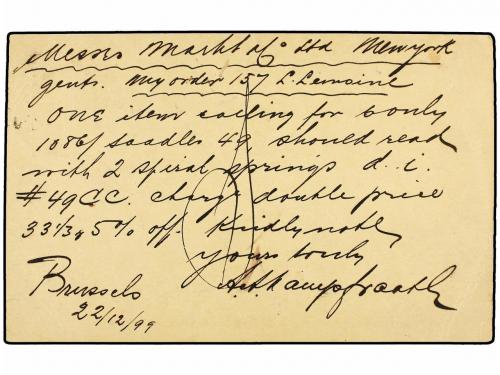 Messrs Markt & Co Ltd New york
gents. My order 157 L. Lemoine
One item calling for 6 only
1086f Saddles 49 should read
with 2 spiral springs d. i.
#49CC. charge double price
33 1/3 & 5% off. Kindly note
yours truly
Brussels
22/12/99